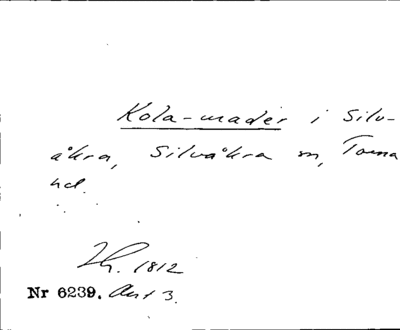 Kola-mader i Silv-
åkra, Silvåkra sn, Torna
hd.
Lh. 1812
Nr 6239. Akt 3.